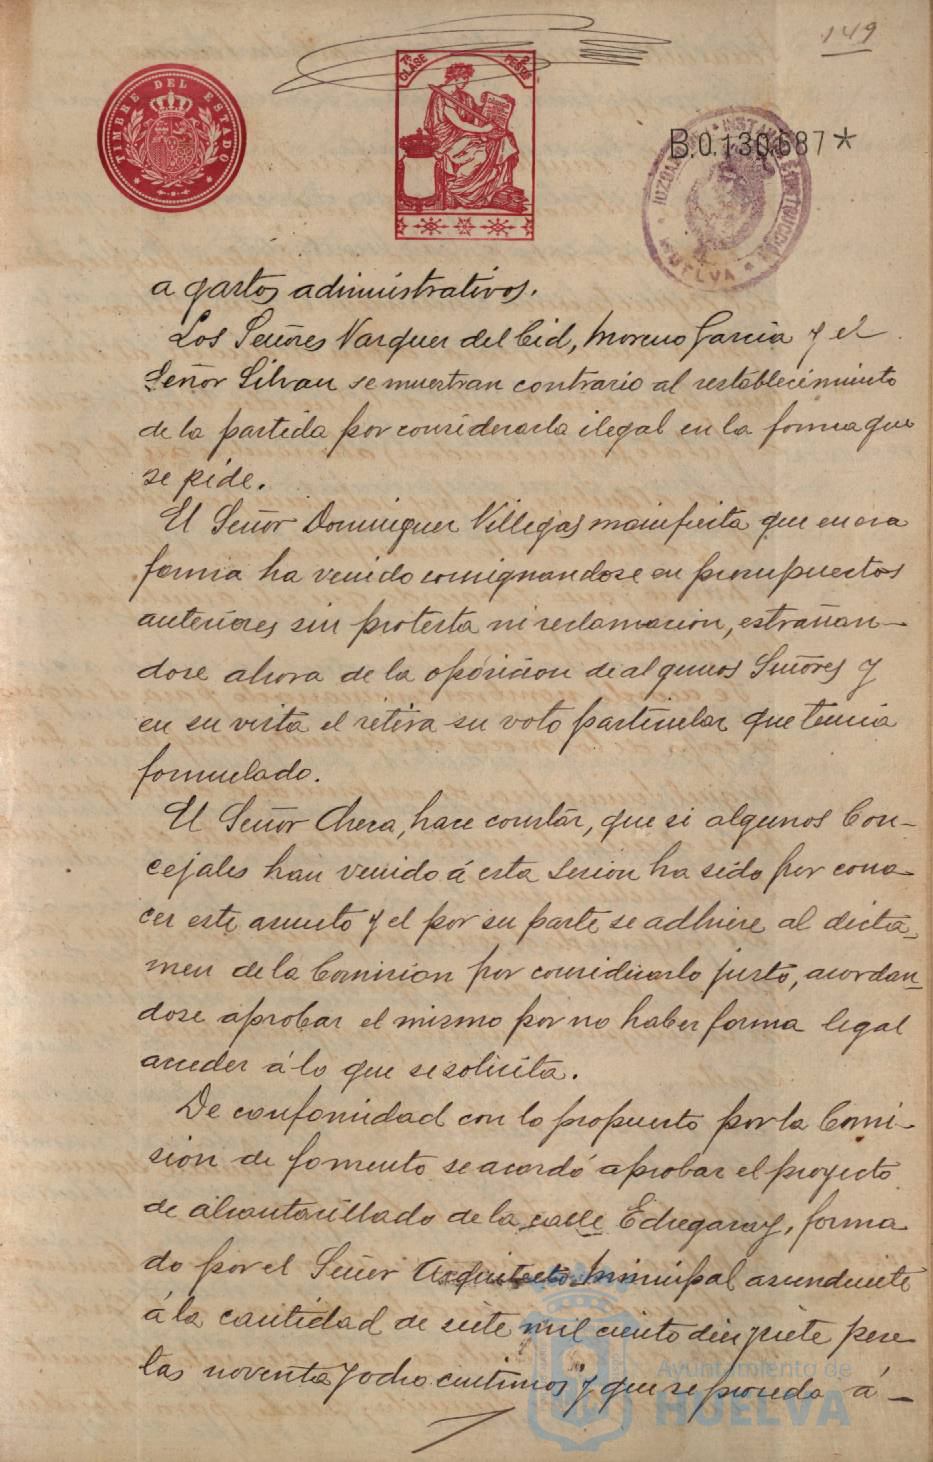 149
TIMBRE DEL ESTADO
7ª CLASE
2 PESETAS
B.0.130,687*
HUELVA
a gastos administrativos.
Los Señores Vazquez del Cid, Moreno Garcia y el
Señor Silvan se muestran contrario al restablecimiento
de la partida por considerarla ilegal en la forma que
se pide.
El Señor Dominguez Villegas manifiesta que en esa
forma ha venido consignandose en presupuestos
anteriores sin protesta ni reclamacion, estrañan-
dose ahora de la oposicion de algunos Señores y
en su vista el retira su voto particular que tenia
formulado.
El Señor Checa, hace constar, que si algunos Con-
cejales han venido á esta sesion ha sido por cono-
cer este asunto y el por su parte se adhiere al dicta-
men de la Comision por considerarlo justo, acordan-
dose aprobar el mismo por no haber forma legal
acceder á lo que se solicita.
De conformidad con lo propuesto por la Comi-
sion de fomento se acordó aprobar el proyecto
de alcantarillado de la calle Echegaray, forma
do por el Señor Arquitecto Municipal ascendente
á la cantidad de siete mil ciento diez y siete pese-
tas noventa y ocho centimos y que se proceda á -
Ayuntamiento de
HUELVA